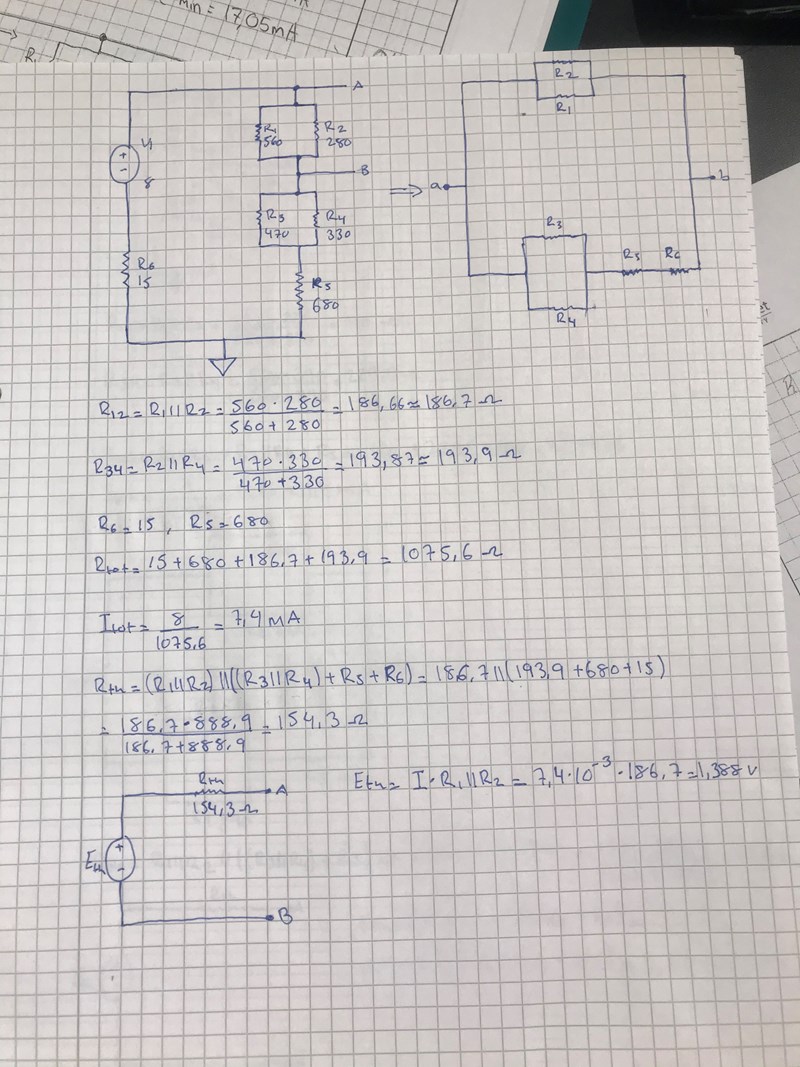 min = 17,05mA
R
A
R1
560
R2
280
U
8
B
R3
470
R4
330
R6
15
R5
680
⇒
R2
R1
a
b
R3
R5
R6
R4
R12 = R1||R2 = 560 · 280 / 560 + 280 = 186,66 ≈ 186,7 Ω
R34 = R2||R4 = 470 · 330 / 470 + 330 = 193,87 ≈ 193,9 Ω
R6 = 15 , R5 = 680
Rtot = 15 + 680 + 186,7 + 193,9 = 1075,6 Ω
Itot = 8 / 1075,6 = 7,4 mA
RTH = (R1||R2)||((R3||R4) + R5 + R6) = 186,7||(193,9 + 680 + 15)
= 186,7 · 888,9 / 186,7 + 888,9 = 154,3 Ω
ETH = I · R1||R2 = 7,4 · 10⁻³ · 186,7 = 1,388 V
RTH
154,3 Ω
A
Eth
B